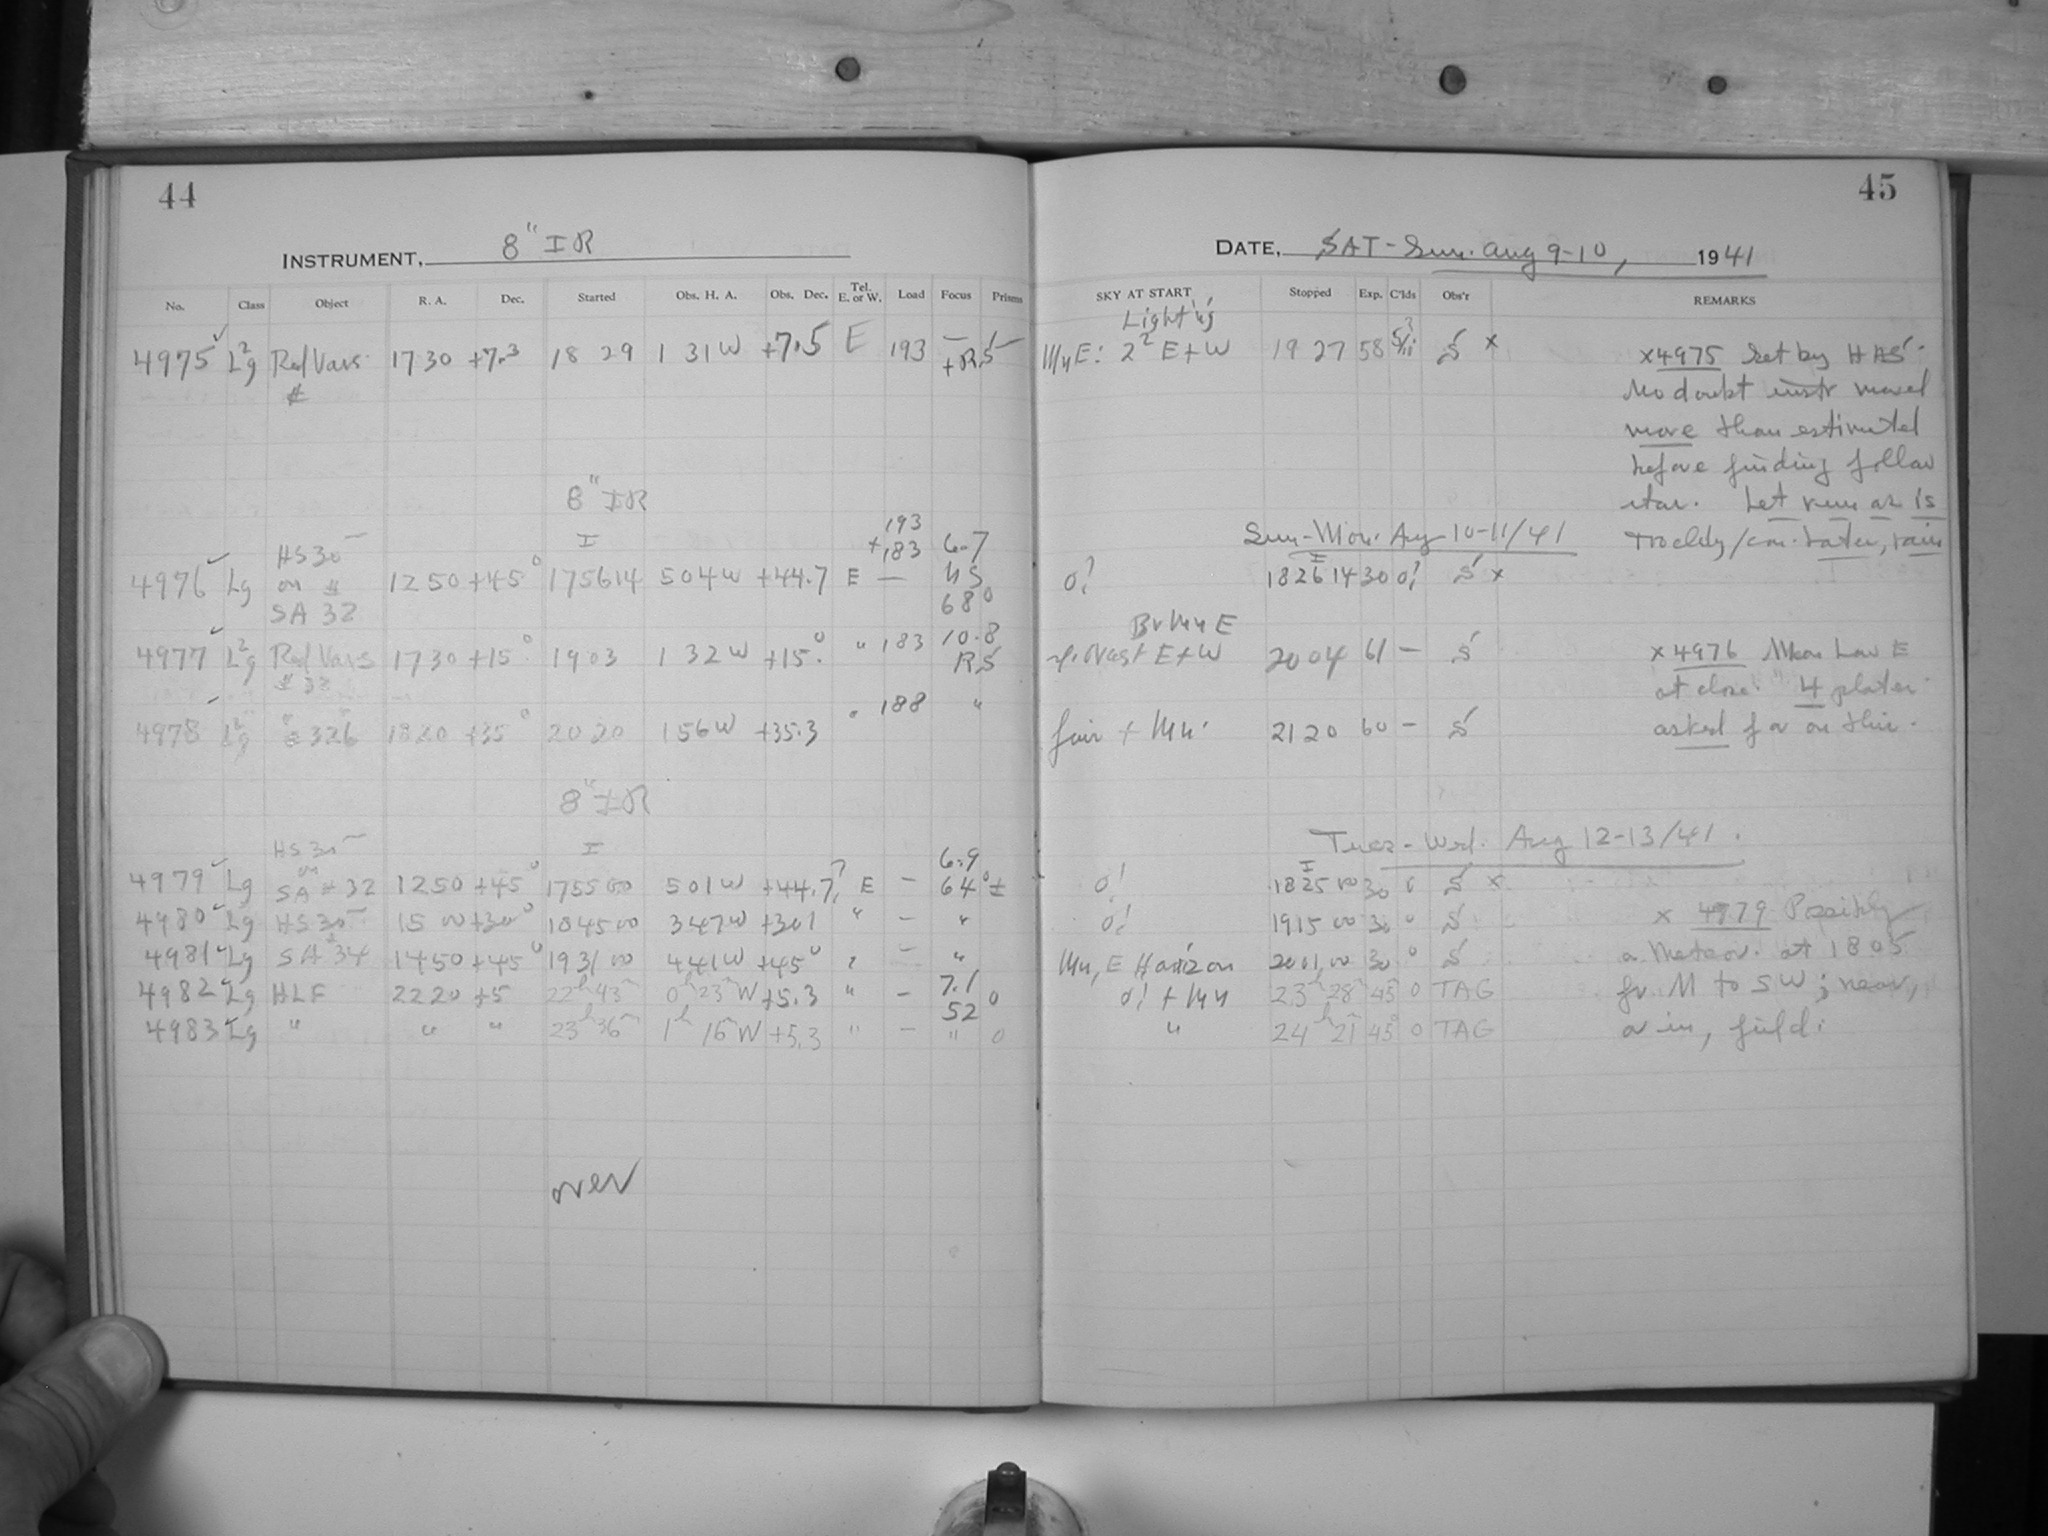 44
INSTRUMENT, 8" IR
No. Class Object R. A. Dec. Started Obs. H. A. Obs. Dec. Tel. E. or W. Load Focus Prisms
4975 Lg2 Red Vars 17 30 +7.3 18 29 1 31 W +7.5 E 193 + RS
8" IR
I
193
HS 30 + 183 6.7
4976 Lg on 12 50 +45° 17 56 14 5 04 W +44.7 E — HS
SA 32 68°
4977 Lg2 Red Vars 17 30 +15° 19 03 1 32 W +15° " 183 10.8
# 32 RS
4978 Lg2 " 326 18 20 +35° 20 20 1 56 W +35.3 " 188 "
8" IR
HS 30 I 6.9
4979 Lg on SA # 32 12 50 +45° 17 55 00 5 01 W +44.7? E — 64° ±
4980 Lg HS 30 15 00 +30° 18 45 00 3 47 W +30.1 " — "
4981 Lg SA 34 14 50 +45° 19 31 00 4 41 W +45° " — "
4982 Lg HLF 22 20 +5 22h 43m 0h 23m W +5.3 " — 7.1 52 0
4983 Lg " " " 23h 36m 1h 16m W +5.3 " — " 0
over
45
DATE, SAT - Sun. Aug 9-10, 1941
SKY AT START Stopped Exp. C'lds Obs'r REMARKS
Light'g
E: 2² E + W 19 27 58 S x
x 4975 Set by HAS.
No doubt instr moved
more than estimated
before finding follow
star. Let run as is
Sun - Mon. Aug 10-11/41
I
0? 18 26 14 30 0? S x
E
E + W 20 04 61 — S
fair + 21 20 60 — S
x 4976 Moon Low E
at close. 4 plates
asked for on this.
Tues - Wed. Aug 12-13/41.
I
0! 18 25 00 30 0 S x
0! 19 15 00 30 0 S
E Horizon 20 01 00 30 0 S
0! + 23h 28m 45 0 TAG
" 24h 21 45 0 TAG
x 4979 Possibly
a Meteor at 1805
fr N to SW; near,
or in, field.